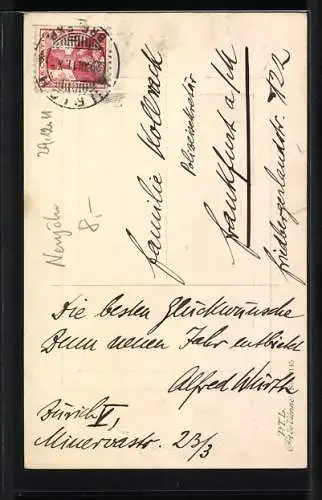 Familie Kollrack
Polizeisekretär
Frankfurt a/M
Friedbergerlandstr. 122
Die besten Glückwünsche
Zum neuen Jahr entbietet
Alfred Würth
Zürich V,
Minervastr. 23/3
Neujahr
8.-
29.12.11